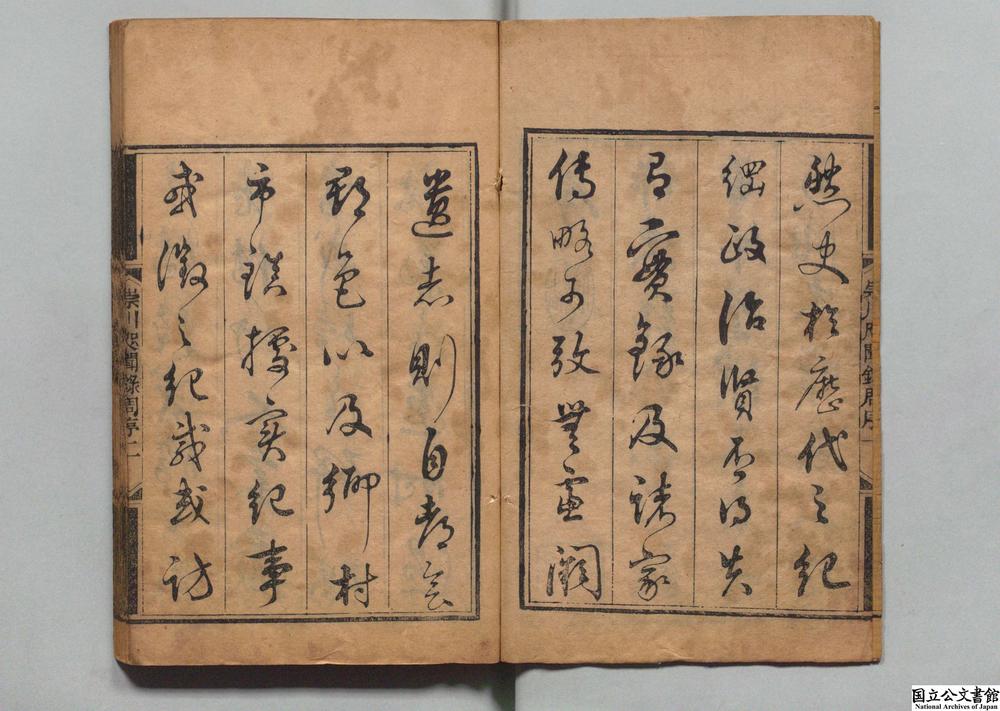 然史於歷代之紀
綱政治賢否得失
有實錄及諸家
傳略可攷無虛
遺志則自都會
郡邑以及鄉村
市鎮據實紀事
或徵之紀載或訪
崇川咫聞錄周序一
崇川咫聞錄周序二
国立公文書館
National Archives of Japan